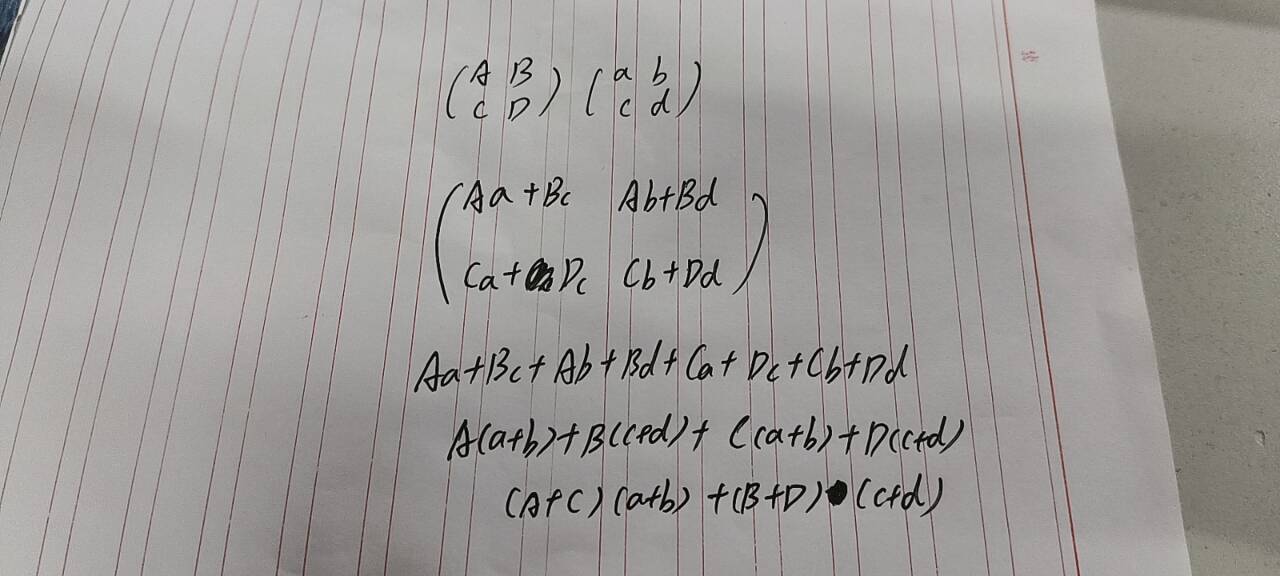 (A B) (a b)
(C D) (c d)
(Aa+Bc Ab+Bd)
(Ca+Dc Cb+Dd)
Aa+Bc+Ab+Bd+Ca+Dc+Cb+Dd
A(a+b)+B(c+d)+C(a+b)+D(c+d)
(A+C)(a+b)+(B+D)(c+d)